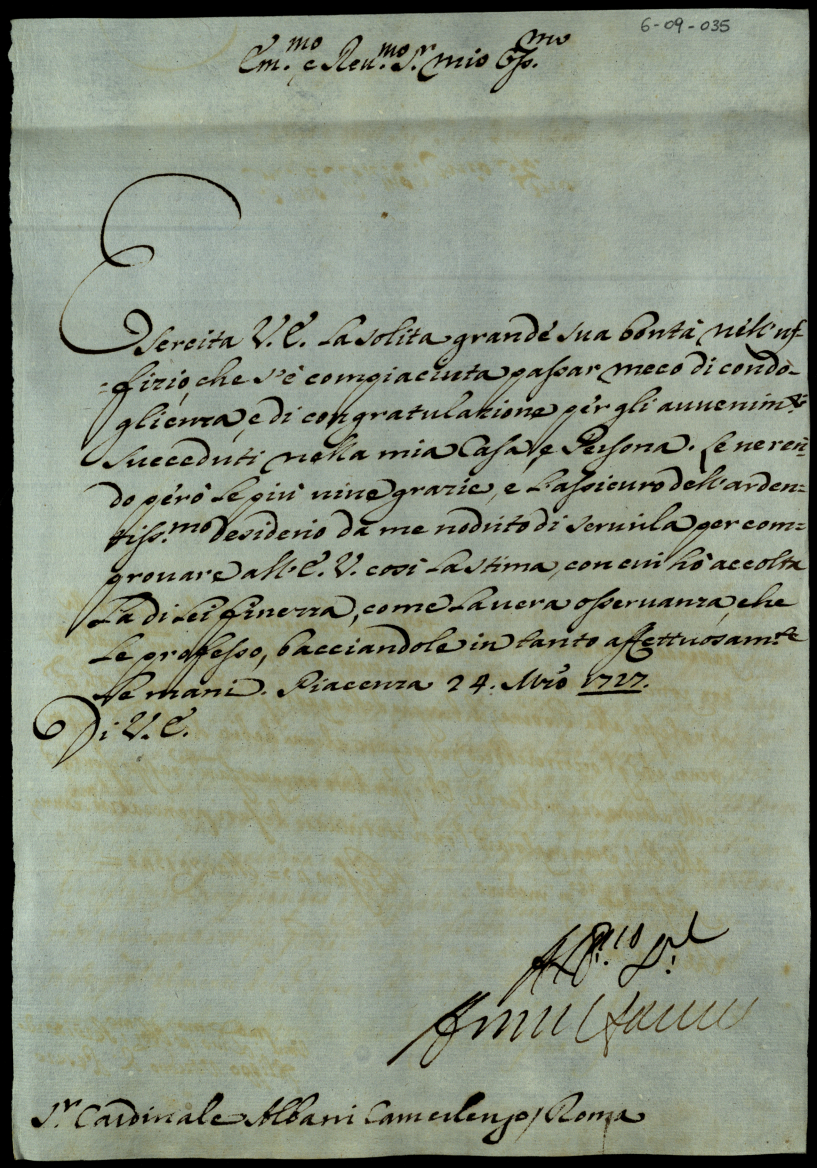 6-09-035
Em.mo e Reu.mo S.r mio Oss.mo
Esercita V. E. la solita grande sua bontà nell'uf=
=fizio, che s'è compiaciuta passar meco di condo=
glienza, e di congratulazione per gli auuenim.ti
succeduti nella mia Casa, e Persona. Le ne ren=
do però le più uiue grazie, e l'assicuro dell'arden=
tiss.mo desiderio da me nodrito di seruirla per com=
prouare all'E. V. così la stima, con cui hò accolta
la di lei finezza, come la uera osseruanza, che
le professo, bacciandole in tanto affettuosam.te
le mani. Piacenza 24. Mrõ 1727.
Di V. E.
S.r Cardinale Albani Camerlengo / Roma